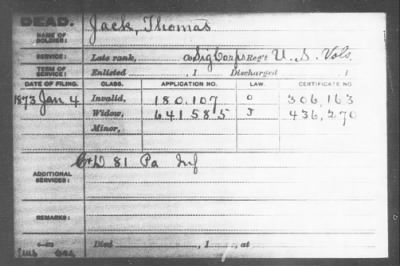 DEAD.
NAME OF SOLDIER: Jack, Thomas
SERVICE: Late rank, Co. Sig Corps Reg't U. S. Vols.
TERM OF SERVICE: Enlisted , 1 Discharged , 1
DATE OF FILING. CLASS. APPLICATION NO. LAW. CERTIFICATE NO.
1873 Jan 4 Invalid, 180.107 306,163
Widow, 641.585 436,270
Minor,
ADDITIONAL SERVICES: D 81 Pa Inf
REMARKS:
Died , 1 , at